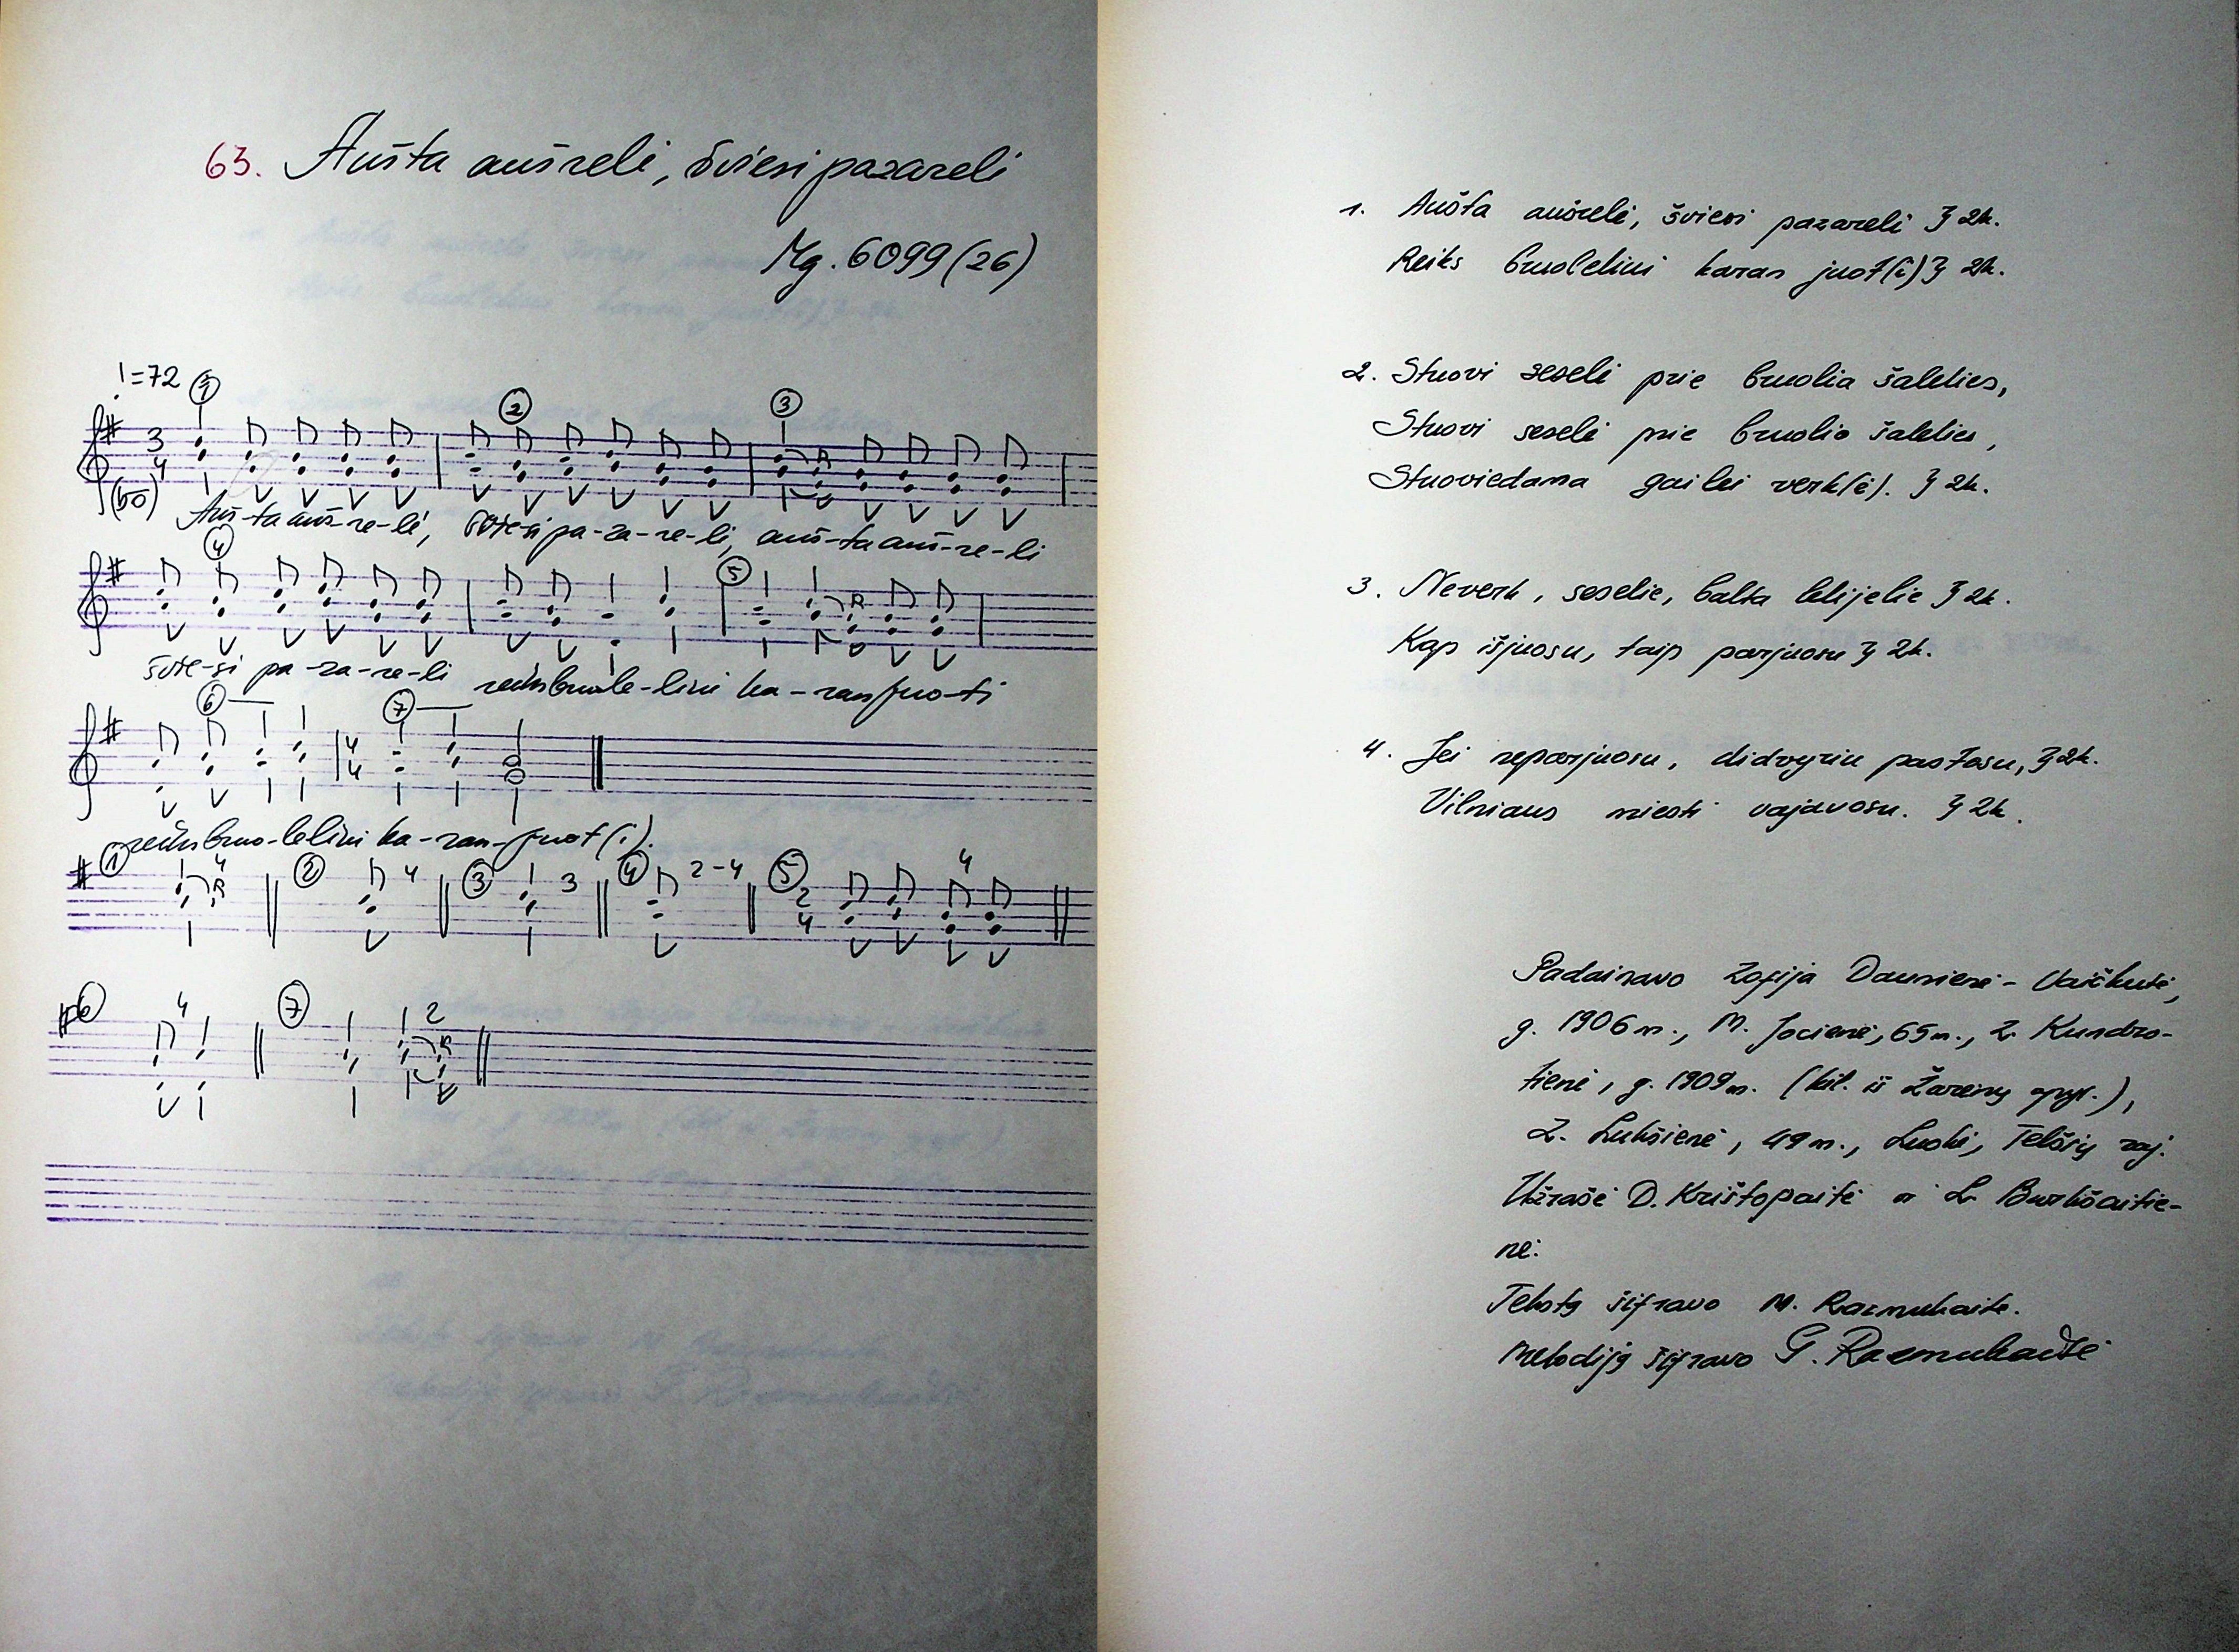 63. Aušta aušreli, šviesi pazareli
Mg. 6099 (26)
♩=72
(60)
Auš-ta auš-re-li, švie-si pa-za-re-li, auš-ta auš-re-li
švie-si pa-za-re-li reiks bruole-lini ka-ran juo-ti
reiks bruo-lelini ka-ran-juot(i).
1. Aušta aušreli, šviesi pazareli } 2k.
Reiks bruolelini karan juot(i) } 2k.
2. Stuovi seseli prie bruolia šalelies,
Stuovi seseli prie bruolio šalelies,
Stuoviedama gailei verk(ė). } 2k.
3. Neverk, seselie, balta lelijelie } 2k.
Kap išjuosu, taip parjuosu } 2k.
4. Jei neparjuosu, didvyriu pastosu, } 2k.
Vilniaus miesti vajavosu. } 2k.
Padainavo Zofija Daunienė - Vaičkutė,
g. 1906 m., M. Jocienė, 65 m., Z. Kundro-
tienė, g. 1909 m. (kil. iš Žarėnų apyl.),
Z. Lukšienė, 49 m., Luokė, Telšių raj.
Užrašė D. Krištopaitė ir L. Burkšaitie-
nė.
Tekstą šifravo M. Razmukaitė.
Melodiją šifravo G. Razmukaitė